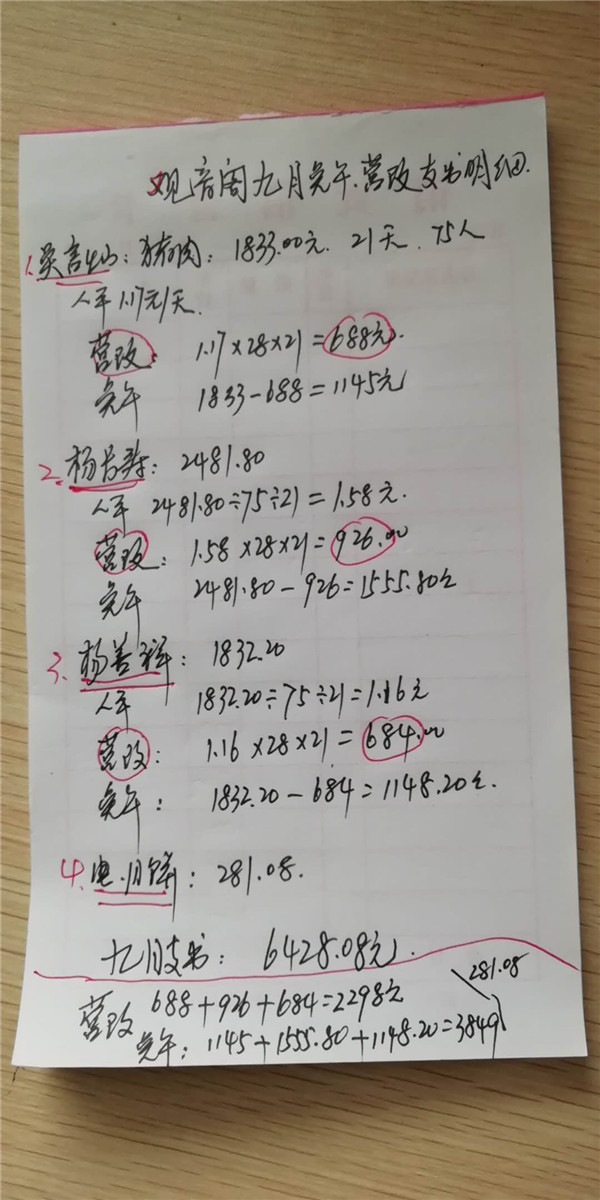 观音阁九月免午、营改支出明细
1. 吴言灿:猪肉:1833.00元. 21天. 75人
人平1.17元/天.
营改. 1.17×28×21=688元.
免午 1833-688=1145元
2. 杨长寿:2481.80
人平 2481.80÷75÷21=1.58元.
营改: 1.58×28×21=926.00
免午 2481.80-926=1555.80元
3. 杨善祥:1832.20
人平 1832.20÷75÷21=1.16元
营改: 1.16×28×21=684.00
免午: 1832.20-684=1148.20元.
4. 电.月饼:281.08.
九月支出: 6428.08元.
281.08
营改 688+926+684=2298元
免午:1145+1555.80+1148.20=3849